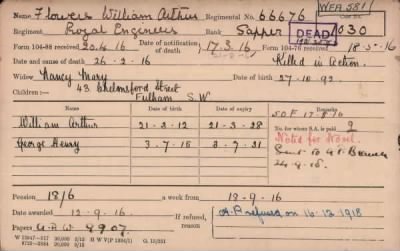 Name Flowers William Arthur Regimental No. 66676 WFA 581
Regiment Royal Engineers Rank Sapper DEAD 1030
Form 104-88 received 20.4.16 Date of notification of death 17.3.16 Form 104-76 received 18.5.16
Date and cause of death 26.2.16 Killed in Action.
Widow Nancy Mary Date of birth 27.10.92
Children:— 43 Chelmsford Street
Fulham S.W
Name Date of birth Date of expiry
William Arthur 21-3-12 21-3-28
George Henry 3-7-15 3-7-31
No. for whom S.A. is paid 2
Noted for
Sent to
24.9.16.
Pension 18/6 a week from 18-9-16
Date awarded 12.9.16 If refused, reason A.P. refused on 16-12-1918
Papers